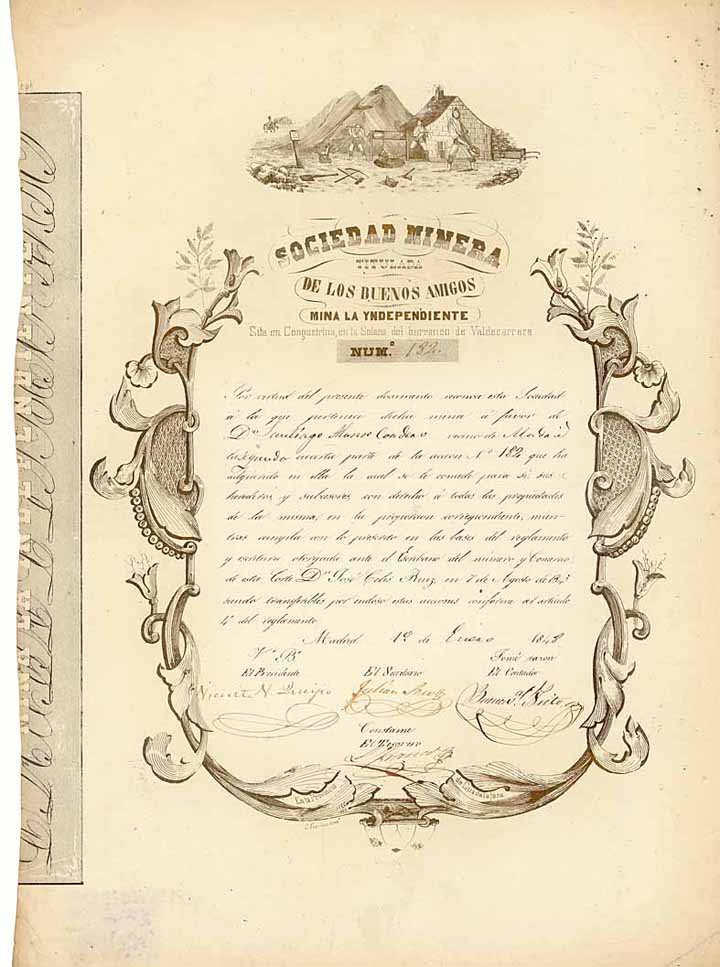 SOCIEDAD MINERA
TITULADA
DE LOS BUENOS AMIGOS
MINA LA YNDEPENDIENTE
Sita en Congostrina, en la Solana del barranco de Valdecarrera
NUM.º 182.
Por virtud del presente documento reconoce esta Sociedad
á la que pertenece dicha mina á favor de
Dn Santiago Alonso Cordero vecino de Madrid
la segunda cuarta parte de la accion Nº 182 que ha
adquirido en ella la cual se le concede para sí, sus
herederos y sucesores con derecho á todas las propiedades
de la misma, en la proporcion correspondiente, mien-
tras cumpla con lo prescrito en las bases del reglamento
y escritura otorgada ante el Escribano del número y Comercio
de esta Corte Dn José Celis Ruiz, en 7 de Agosto de
siendo transferibles por endoso estas acciones conforme al articulo
4º del reglamento
Madrid 1º de Enero 1848
Vº Bº
El Presidente
El Secretario
Tomé razon
El Contador
Vicente
Julian
Constame
El Tesorero
En la Provincia
de Guadalajara